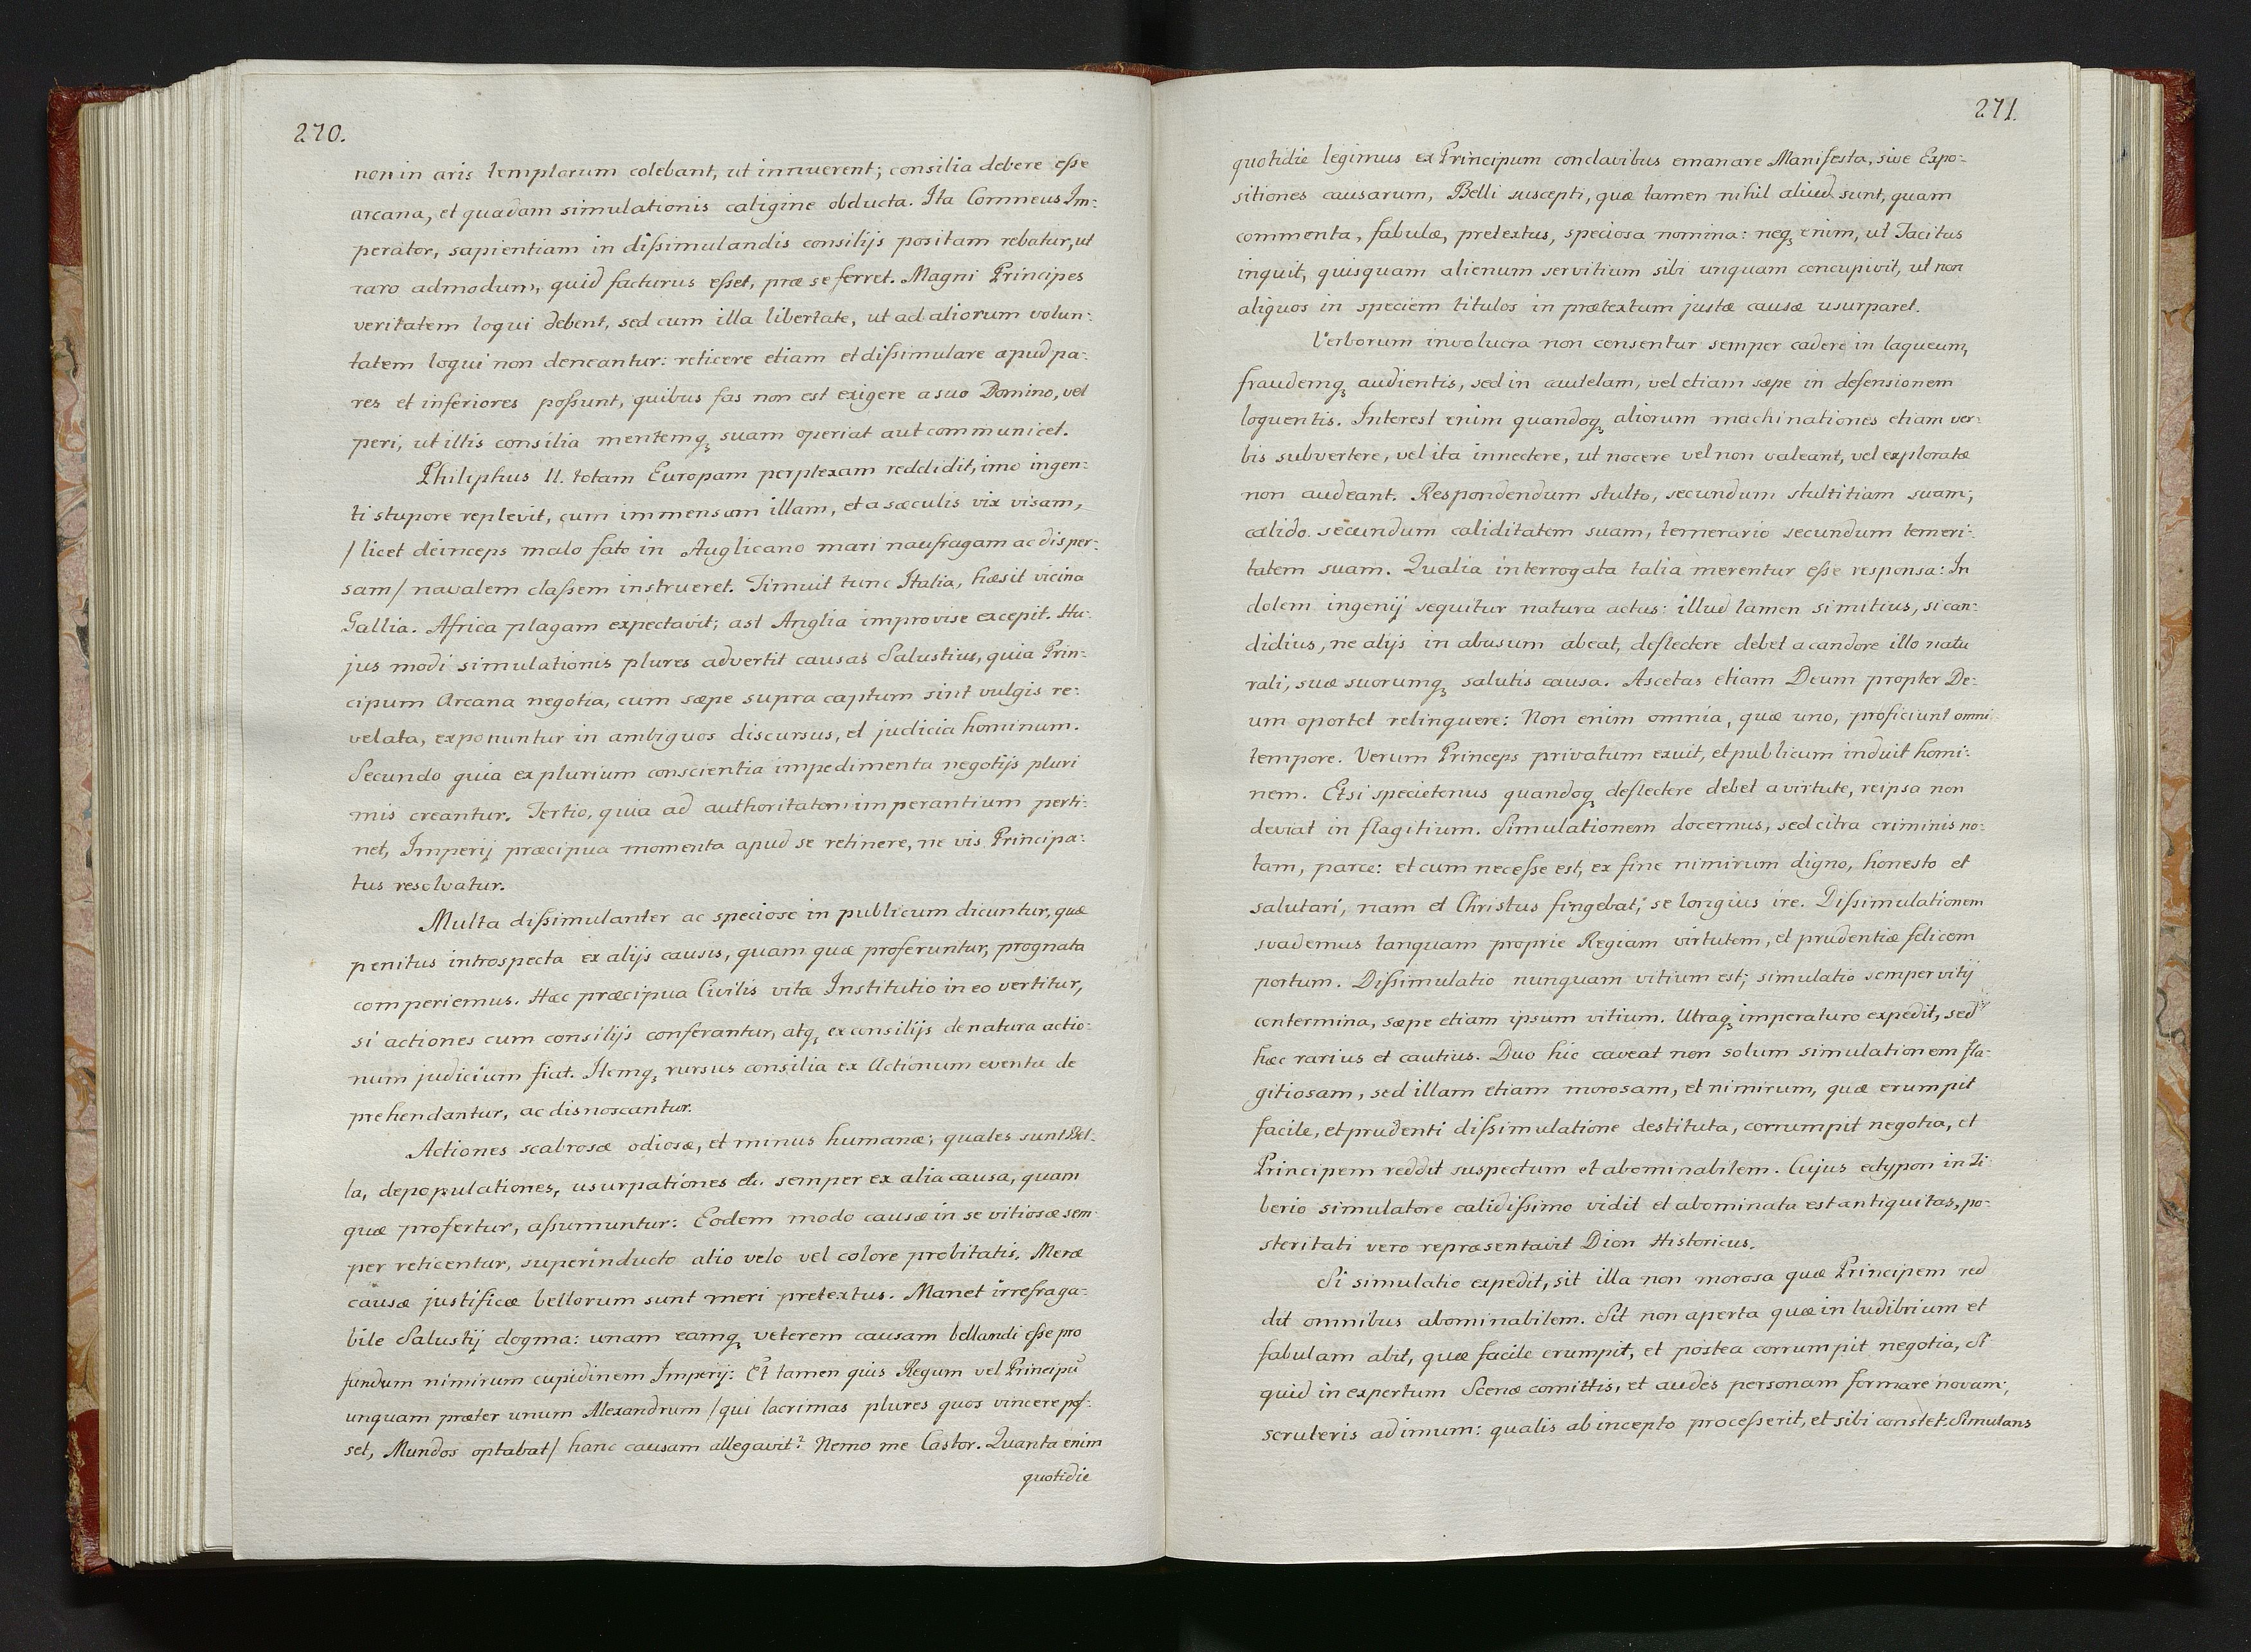 270.
non in aris templorum colebant, ut innuerent; consilia debere eſse
arcana, et quadam simulationis caligine obducta. Ita Comneus Im:
perator, sapientiam in diſsimulandis consilijs positam rebatur, ut
raro admodum, quid facturus eſset, præ se ferret. Magni Principes
veritatem loqui debent, sed cum illa libertate, ut ad aliorum volun:
tatem loqui non deneantur: reticere etiam et diſsimulare apud pa:
res et inferiores poſsunt, quibus fas non est exigere a suo Domino, vel
peri, ut illis consilia mentemq, suam operiat aut communicet.
Philiphus II. totam Europam perplexam reddidit, imo ingen:
ti stupore replevit, cum immensam illam, et a sæculis vix visam,
/ licet deinceps malo fato in Auglicano mari naufragam ac disper:
sam / navalem claſsem instrueret. Timuit tunc Italia, hæsit vicina
Gallia. Africa plagam expectavit; ast Anglia improvise excepit. Hu:
jus modi simulationis plures advertit causas Salustius, quia Prin:
cipum Arcana negotia, cum sæpe supra captum sint vulgis re:
velata, exponuntur in ambiguos discursus, et judicia hominum.
Secundo quia ex plurium conscientia impedimenta negotijs pluri
mis creantur. Tertio, quia ad authoritatem imperantium perti:
net, Imperij præcipua momenta apud se retinere, ne vis Principa:
tus resolvatur.
Multa diſsimulanter ac speciose in publicum dicuntur, quæ
penitus introspecta ex alijs causis, quam quæ proferuntur, prognata
comperiemus. Hæc præcipua Civilis vita Institutio in eo vertitur,
si actiones cum consilijs conferantur, atq, ex consilijs de natura actio:
num judicium fiat. Itemq, rursus consilia ex Actionum eventu de
prehendantur, ac disnoscantur.
Actiones scabrosæ odiosæ, et minus humanæ; quales sunt Bel:
la, depopulationes, usurpationes etc. semper ex alia causa, quam
quæ profertur, aſsumuntur: Eodem modo causæ in se vitiosæ sem:
per reticentur, superinducto alio velo vel colore probitatis. Meræ
causæ justificæ bellorum sunt meri pretextus. Manet irrefraga:
bile Salustij dogma: unam eamq, veterem causam bellandi eſse pro
fundum nimirum cupidinem Imperij: Et tamen quis Regum vel Principū
unquam præter unum Alexandrum / qui lacrimas plures quos vincere poſ:
set, Mundos optabat / hanc causam allegavit? Nemo me Castor. Quanta enim
quotidie
271.
quotidie legimus ex Principum conclavibus emanare Manifesta, sive Expo:
sitiones causarum, Belli suscepti, quæ tamen nihil aliud sunt, quam
commenta, fabulæ, pretextus, speciosa nomina: neq, enim, ut Tacitus
inquit, quisquam alienum servitium sibi unquam concupivit, ut non
aliquos in speciem titulos in prætextum justæ causæ usurparet.
Verborum involucra non censentur semper cadere in laqueum,
fraudemq, audientis, sed in cautelam, vel etiam sæpe in defensionem
loquentis. Interest enim quandoq, aliorum machinationes etiam ver:
bis subvertere, vel ita innectere, ut nocere vel non valeant, vel exploratæ
non audeant. Respondendum stulto, secundum stultitiam suam;
calido secundum caliditatem suam, temerario secundum temeri:
tatem suam. Qualia interrogata talia merentur eſse responsa: In
dolem ingenij sequitur natura actus: illud tamen simitius, si can:
didius, ne alijs in abusum abeat, deflectere debet a candore illo natu
rali, suæ suorumq, salutis causa. Ascetas etiam Deum propter De:
um oportet relinquere: Non enim omnia, quæ uno, proficiunt omni
tempore. Verum Princeps privatum exuit, et publicum induit homi:
nem. Etsi specietenus quandoq, deflectere debet a virtute, reipsa non
deviat in flagitium. Simulationem docemus, sed citra criminis no:
tam, parce: et cum neceſse est, ex fine nimirum digno, honesto et
salutari, nam et Christus fingebat, se longius ire. Diſsimulationem
svademus tanquam proprie Regiam virtutem, et prudentiæ felicem
portum. Diſsimulatio nunquam vitium est; simulatio semper vitij
contermina, sæpe etiam ipsum vitium. Utraq, imperaturo expedit, sed
hæc rarius et cautius. Duo hic caveat non solum simulationem fla:
gitiosam, sed illam etiam morosam, et nimirum, quæ erumpit
facile, et prudenti diſsimulatione destituta, corrumpit negotia, et
Principem reddit suspectum et abominabilem. Cujus ectypon in Ti
berio simulatore calidiſsimo vidit et abominata est antiquitas, po:
steritati vero repræsentavit Dion Historicus.
Si simulatio expedit, sit illa non morosa quæ Principem red
dit omnibus abominabilem. Sit non aperta quæ in ludibrium et
fabulam abit, quæ facile erumpit, et postea corrumpit negotia, Si
quid in expertum Scenæ comittis, et audes personam formare novam;
scruteris ad imum: qualis ab incepto proceſserit, et sibi constet: Simulans